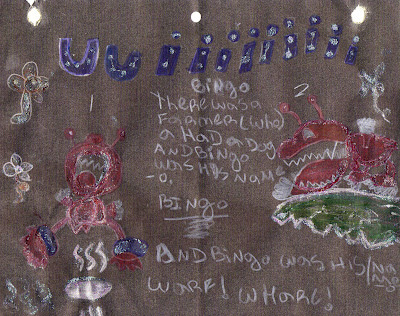 Uuiiiiiiiii
1
2
BINGO
THERE WAS A
FARMER (WHO)
A HAD A DOG,
AND BINGO
WAS HIS NAME
-O.
BINGO
AND BINGO WAS HIS/NA
ME
WARF! WHARF!